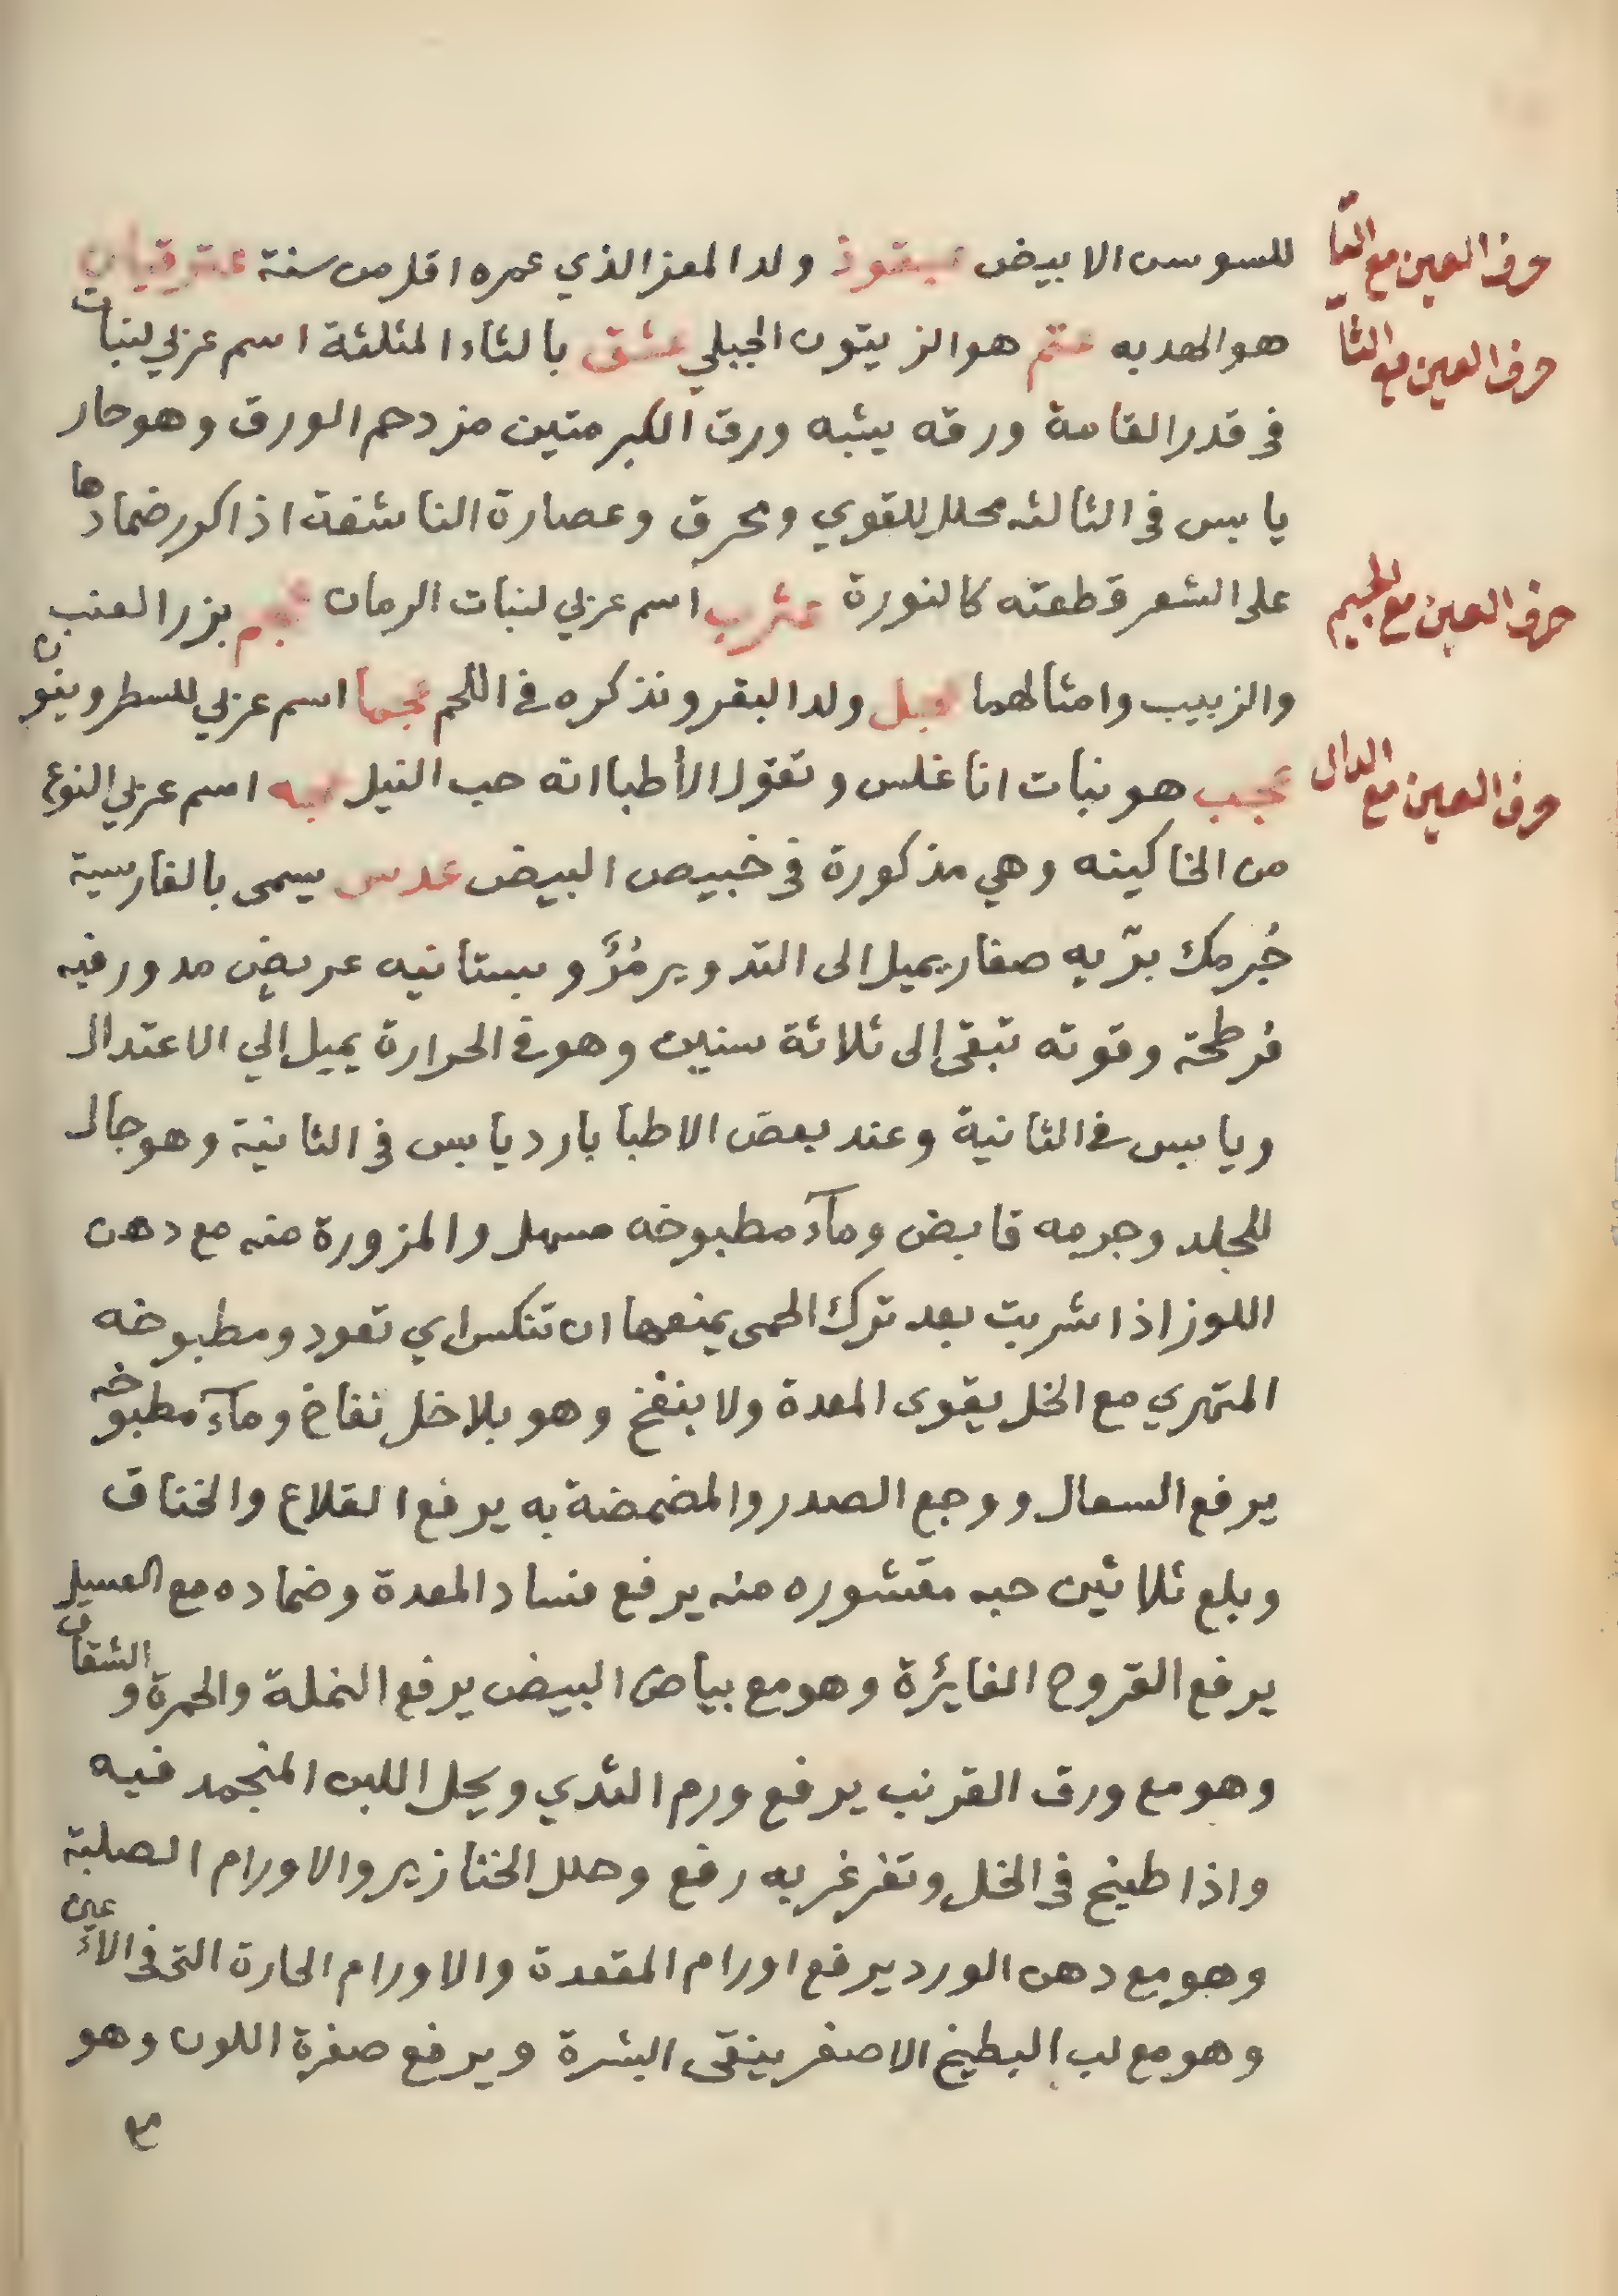 حرف العين مع التا
للسوسن الابيض عتود ولد المعز الذي عمره اقل من سنة
حرف العين مع الثا
هو الهدبه عتم هو الزيتون الجبلي عشق بالثاء المثلثة اسم عربي لنبات
في قدر القامة ورقه يشبه ورق الكبر متين مزدحم الورق وهو حار
يابس في الثالثه محلل للقوي ومحرق وعصارة الناشفة اذا كور ضمادها
حرف العين مع الجيم
على الشعر قطعته كالنورة عثرب اسم عربي لنبات الرمان عجم بزر العنب
والزبيب وامثالهما عجل ولد البقر ونذكره في اللحم عجما اسم عربي للسطرونيون
حرف العين مع الدال
عجب هو نبات اناغلس وتقول الأطبا انه حب النيل عجبه اسم عربي النوع
من الخاكينه وهي مذكورة في خبيص البيض عدس يسمى بالفارسية
جُرمك برّيه صغار يميل الى التدوير مُرٌّ وبستانيه عريض مدور فيه
فرطحة وقوته تبقى إلى ثلاثة سنين وهو في الحرارة يميل إلي الاعتدال
ويابس في الثانية وعند بعض الاطبا بارد يابس في الثانية وهو جال
للجلد وجرمه قابض ومآء مطبوخه مسهل والمزورة منه مع دهن
اللوز اذا شربت بعد ترك الحمى يمنعها ان تنكس اي تعود ومطبوخه
المتهري مع الخل يقوى المعدة ولا ينفخ وهو بلا خل نفاخ ومآء مطبوخه
يرفع السعال ووجع الصدر والمضمضة به يرفع القلاع والخناق
وبلع ثلاثين حبه مقشوره منه يرفع فساد المعدة وضماده مع العسيل
يرفع القروح الغايرة وهو مع بياض البيض يرفع النملة والحمرة والشقاق
وهو مع ورق القرنب يرفع ورم الثدي ويحل اللبن المنجمد فيه
واذا طبخ في الخل وتغرغر به رفع وحلل الخنازير والاورام الصلبة
وهو مع دهن الورد يرفع اورام المقعدة والاورام الحارة التى في الاعين
وهو مع لب البطيخ الاصفر ينقى البشرة ويرفع صفرة اللون وهو